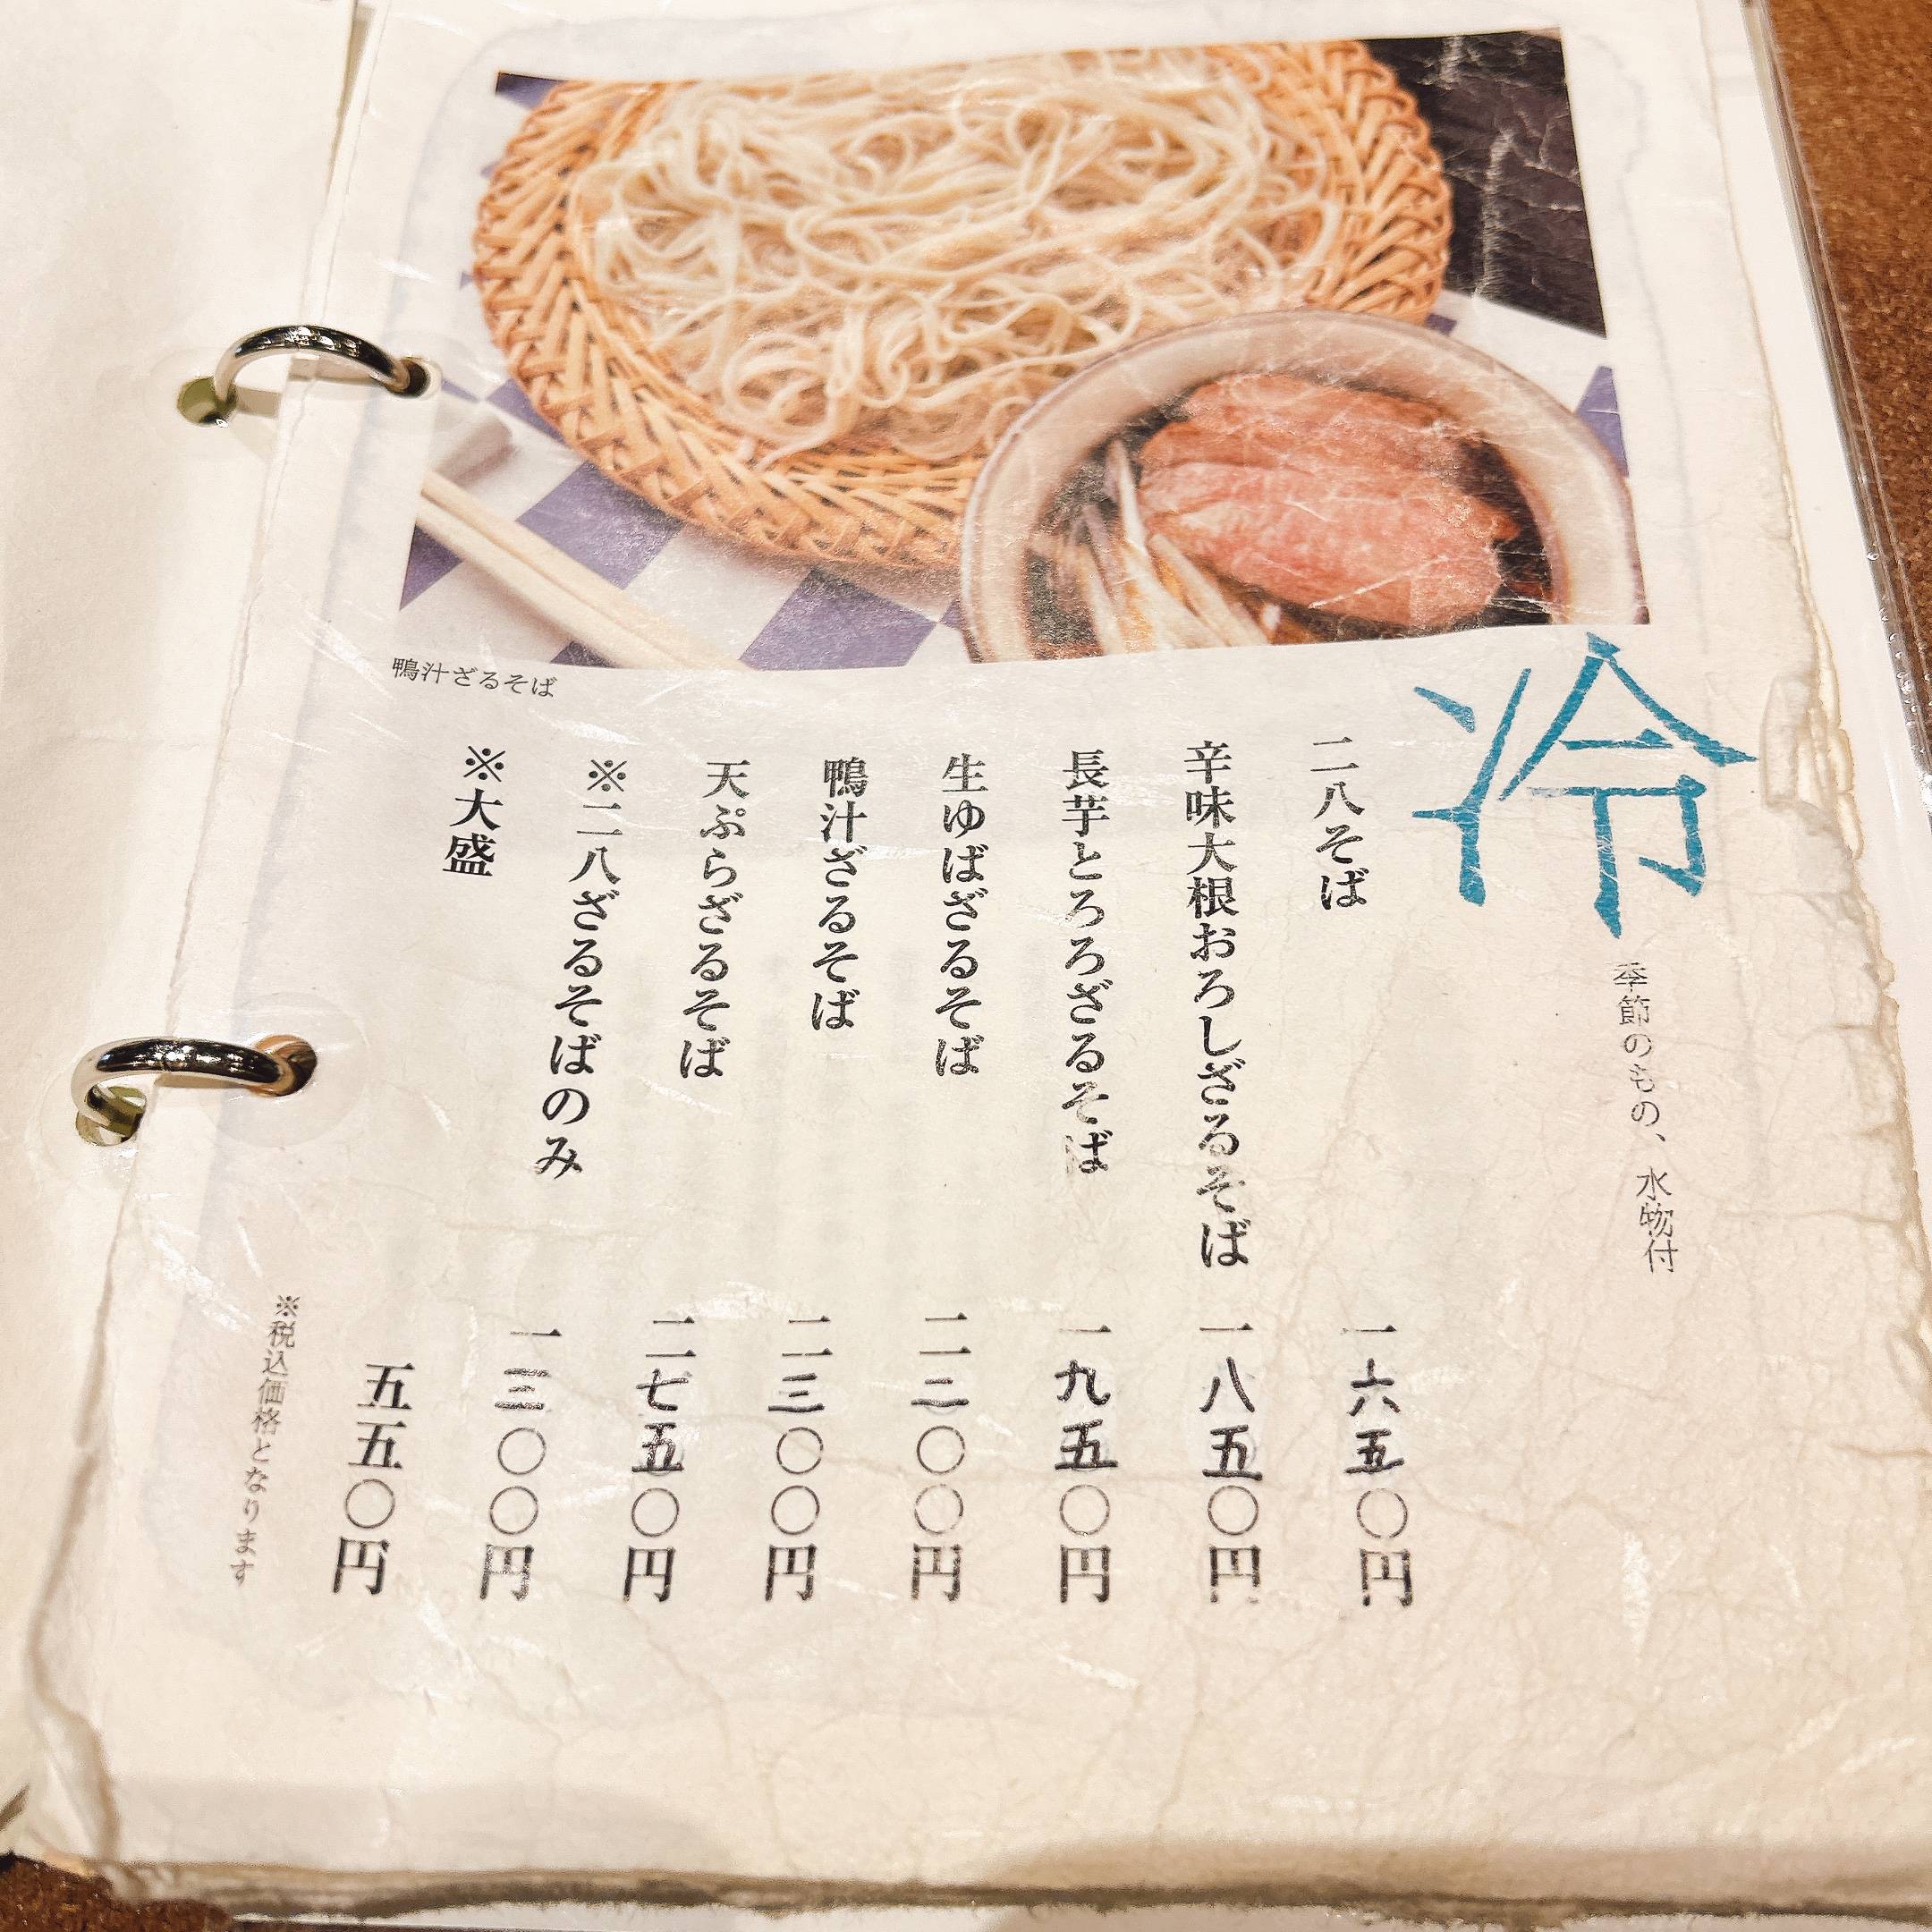 鴨汁ざるそば
冷
季節のもの、水物付
二八そば 一六五〇円
辛味大根おろしざるそば 一八五〇円
長芋とろろざるそば 一九五〇円
生ゆばざるそば 二二〇〇円
鴨汁ざるそば 二三〇〇円
天ぷらざるそば 二七五〇円
※二八ざるそばのみ 一三〇〇円
※大盛 五五〇円
※税込価格となります